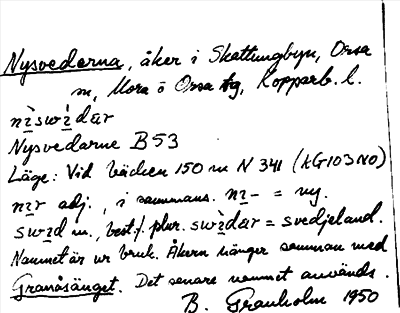 Nysvederna, åker i Skattungbyn, Orsa
m, Mora o Orsa tg, Kopparb. l.
nɪ̀swɪ̀dær
Nysvedarne B53
Läge: Vid bäcken 150 m N 341 (kG103NO)
nɪr adj., i sammans. nɪ- = ny.
swɪd m., best.f. plur. swɪ̀dær = svedjeland.
Namnet är ur bruk. Åkern hänger samman med
Granåsänget. Det senare namnet används.
B. Granholm 1950